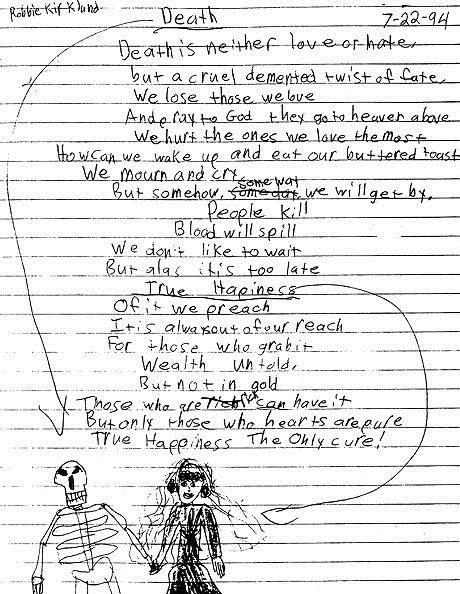 Robbie Kif Klund
Death
7-22-94
Death is neither love or hate,
but a cruel demented twist of fate,
We lose those we love
And pray to God they go to heaven above
We hurt the ones we love the most
How can we wake up and eat our buttered toast
We mourn and cry
someway
But somehow, someday, we will get by.
People Kill
Blood will spill
We don't like to wait
But alas it is too late
True Hapiness
Of it we preach
It is always out of our reach
For those who grab it
Wealth untold,
But not in gold
Those who are rich can have it
But only those who hearts are pure
True Happiness The Only cure!